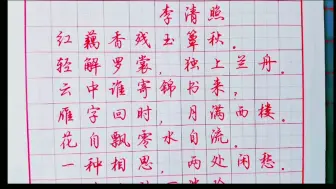 李清照
红藕香残玉簟秋。
轻解罗裳，独上兰舟。
云中谁寄锦书来，
雁字回时，月满西楼。
花自飘零水自流。
一种相思，两处闲愁。